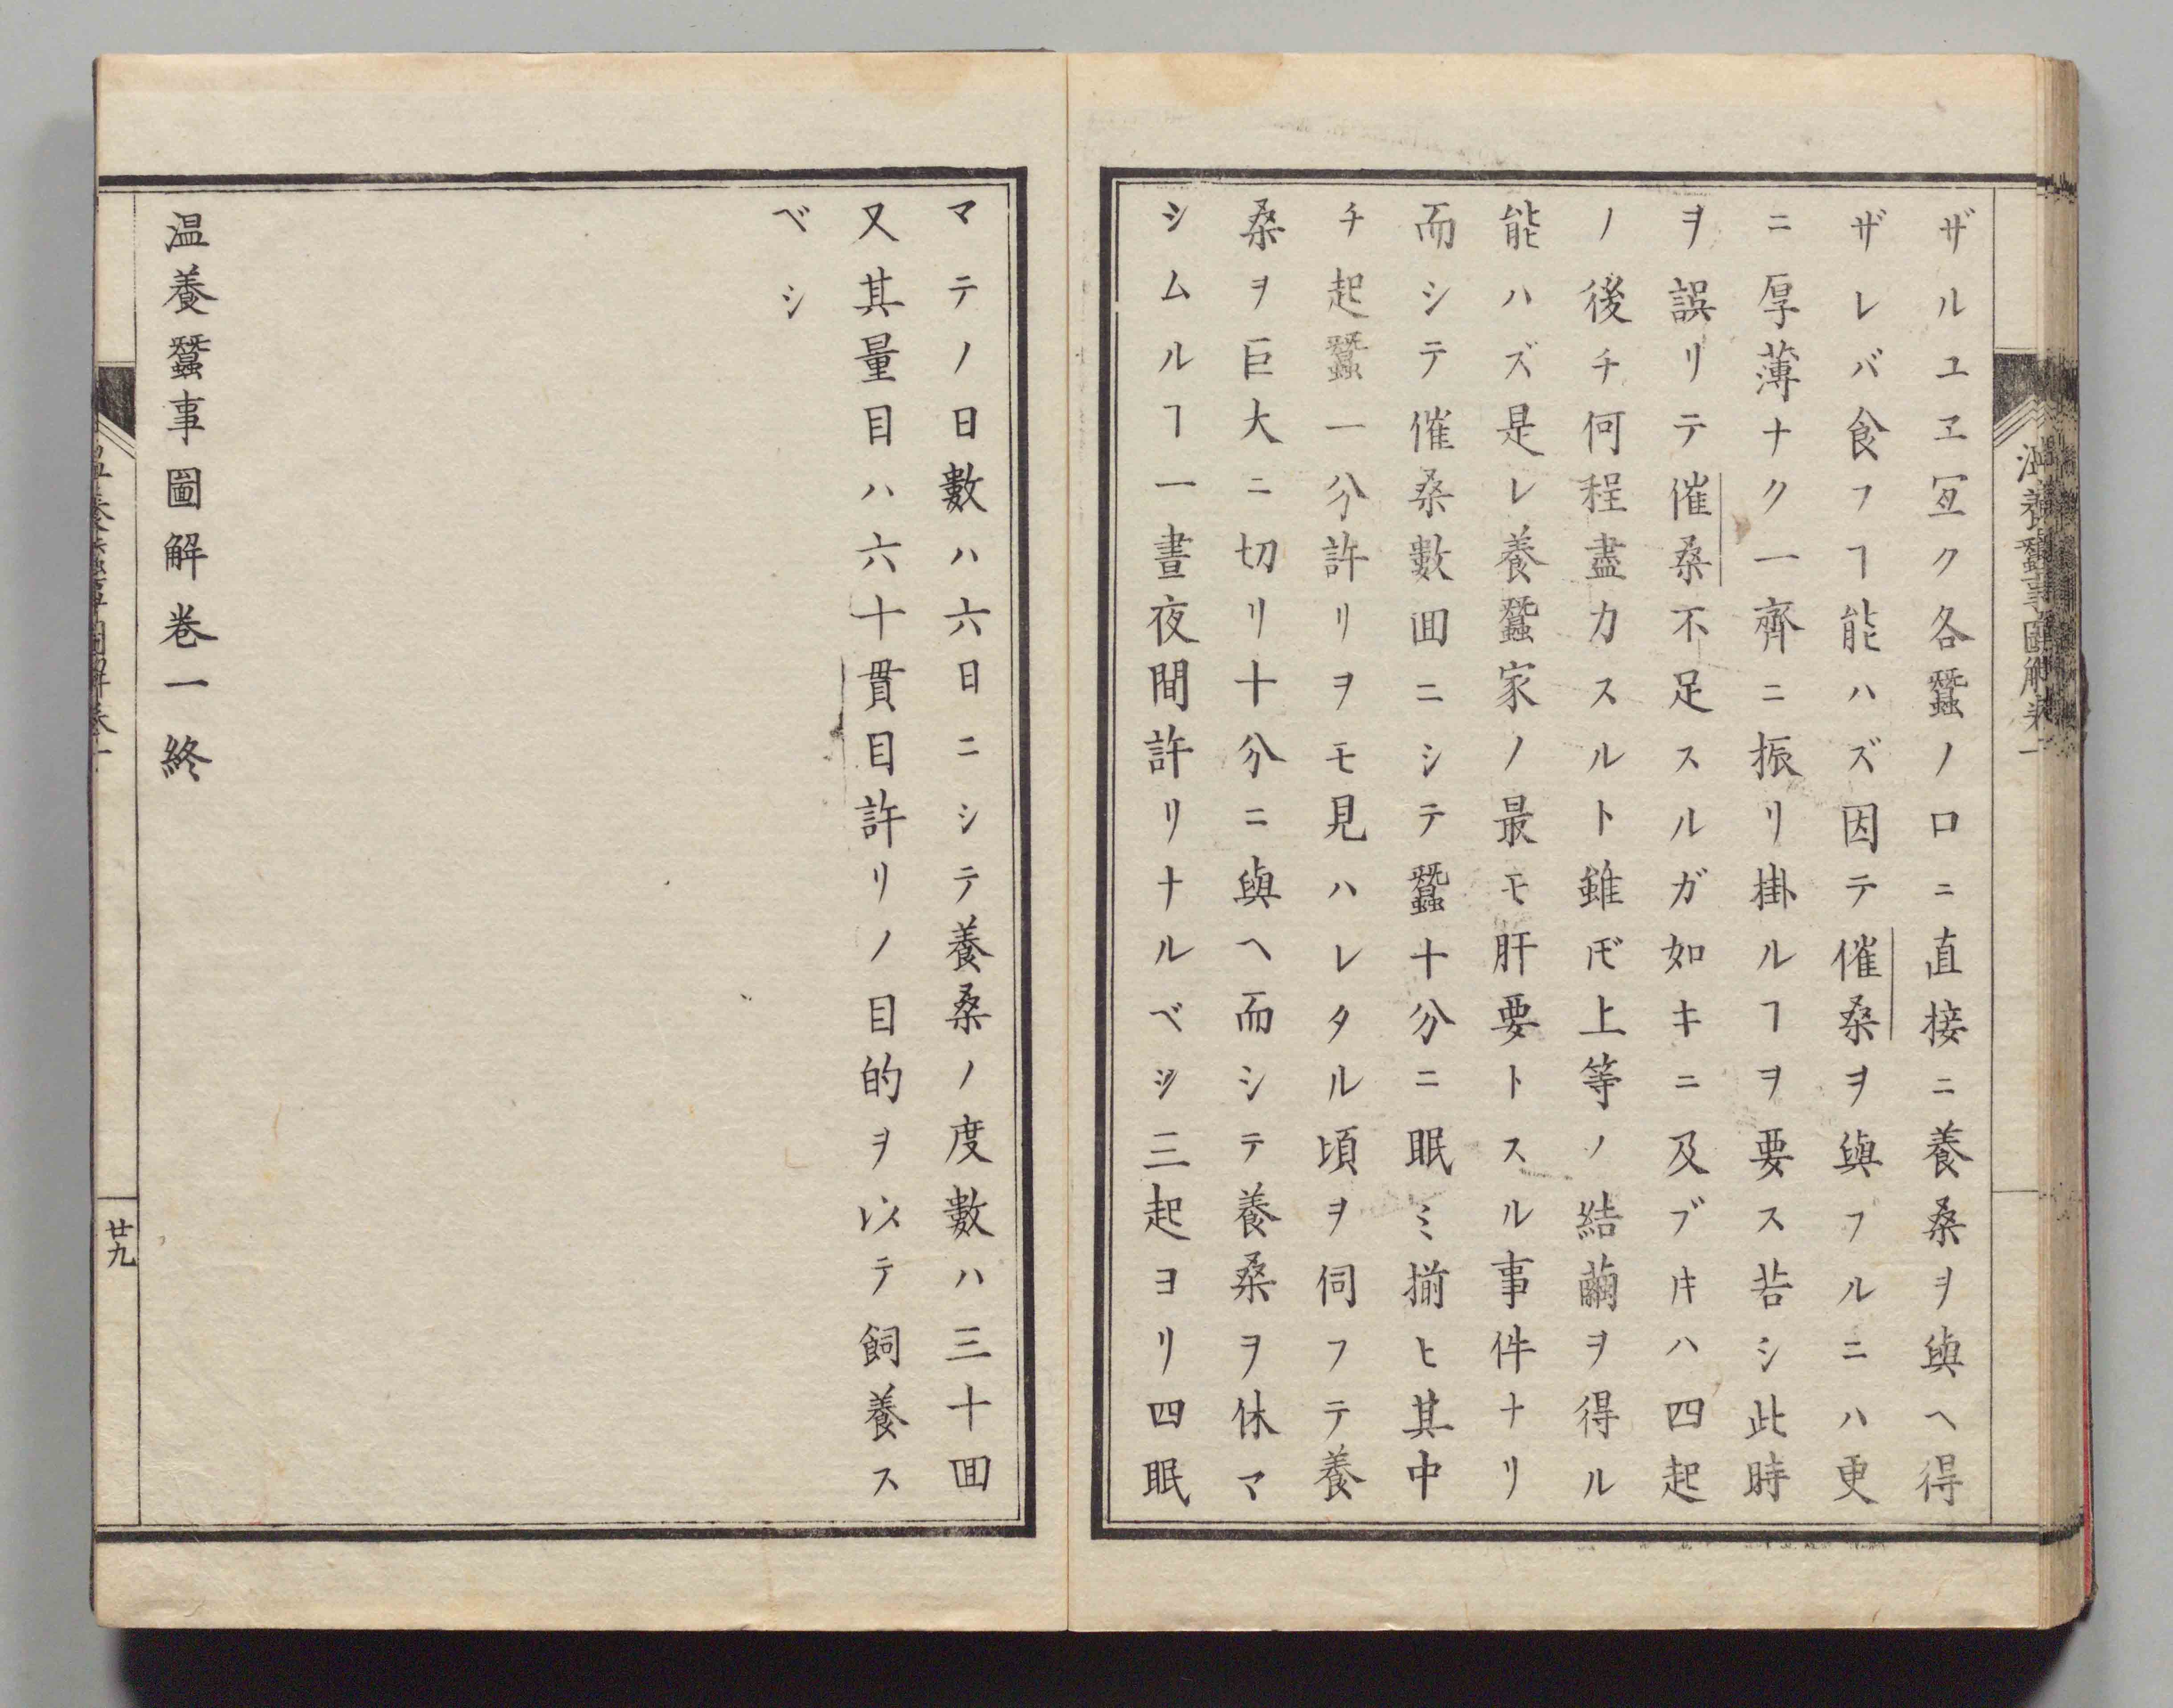 ザルユヱ冝ク各蠶ノ口ニ直接ニ養桑ヲ與ヘ得
ザレバ食フヿ能ハズ因テ催桑ヲ與フルニハ更
ニ厚薄ナク一齊ニ振リ掛ルヿヲ要ス若シ此時
ヲ誤リテ催桑不足スルガ如キニ及ブ𪜈ハ四起
ノ後チ何程盡力スルト雖𪜈上等ノ結繭ヲ得ル
能ハズ是レ養蠶家ノ最モ肝要トスル事件ナリ
而シテ催桑數囬ニシテ蠶十分ニ眠ミ揃ヒ其中
チ起蠶一分許リヲモ見ハレタル頃ヲ伺フテ養
桑ヲ巨大ニ切リ十分ニ與ヘ而シテ養桑ヲ休マ
シムルヿ一晝夜間許リナルベシ三起ヨリ四眠
マテノ日數ハ六日ニシテ養桑ノ度數ハ三十囬
又其量目ハ六十貫目許リノ目的ヲ以テ飼養ス
ベシ
温養蠶事圖解卷一終
廿九